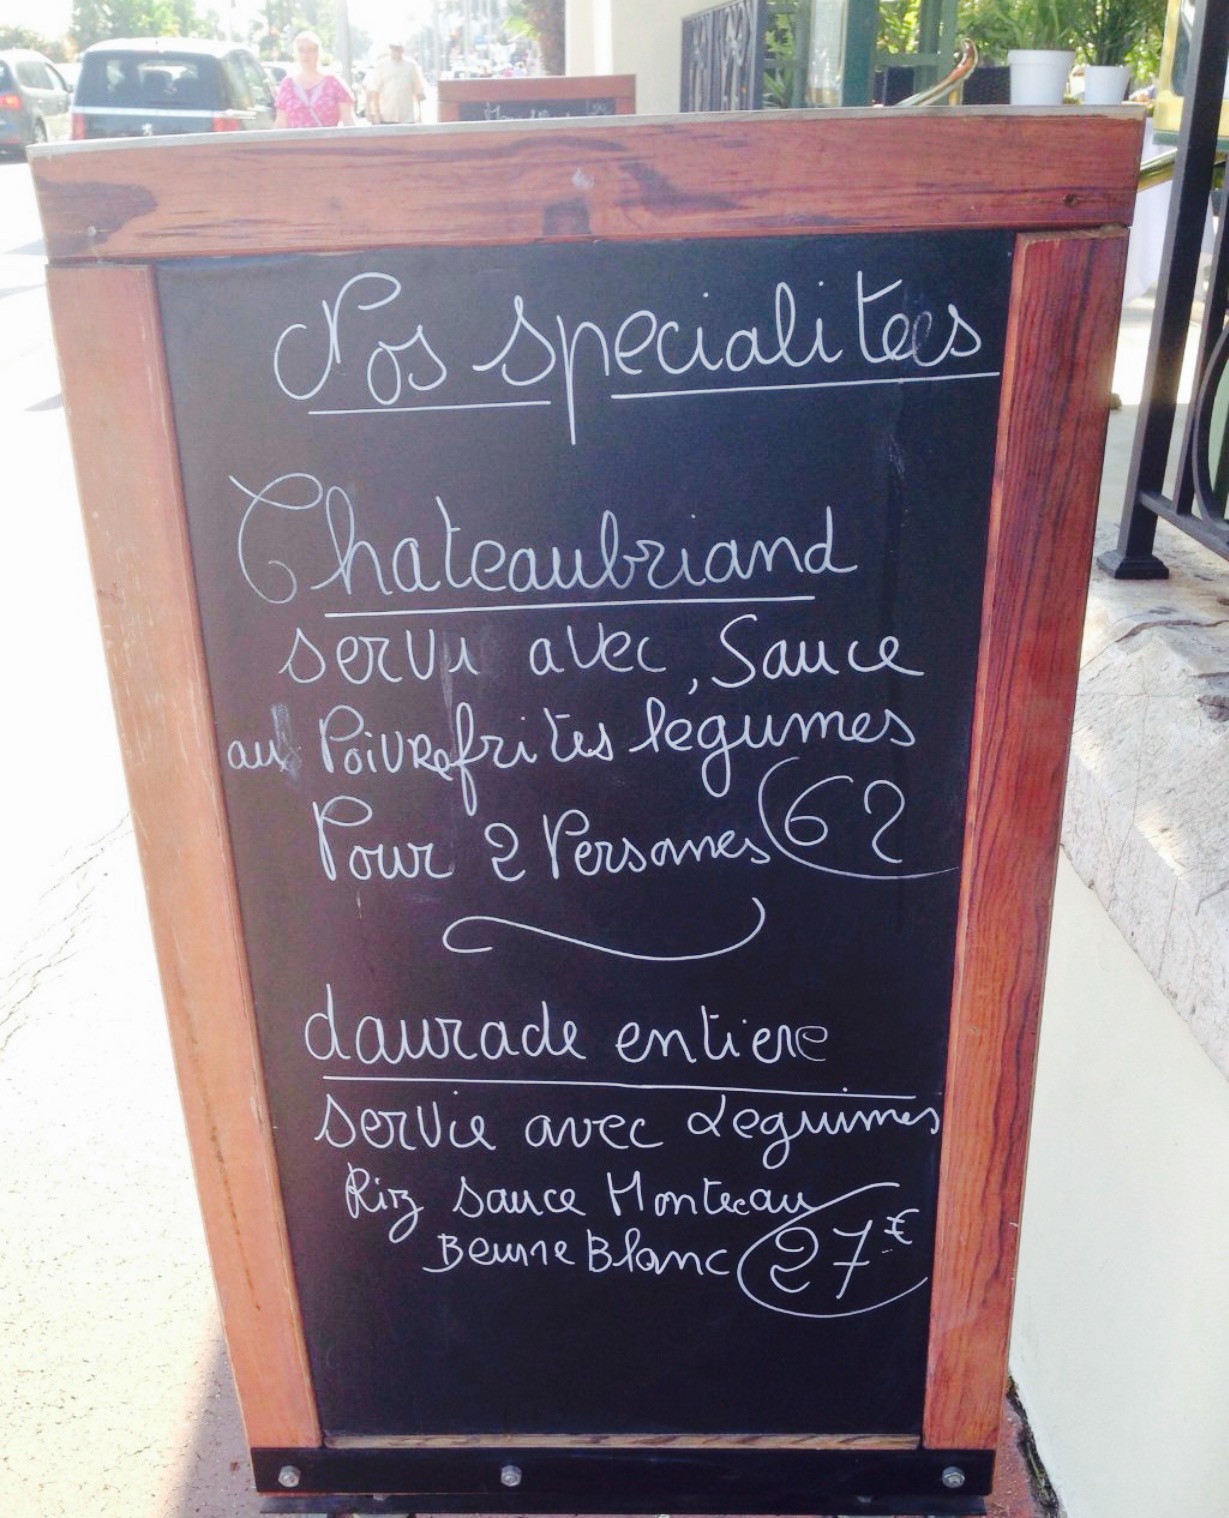 Nos specialitees
Chateaubriand
servi avec, Sauce
au Poivre frites légumes
Pour 2 Personnes 62
daurade entiere
servie avec Legumes
Riz sauce Monteau
Beurre Blanc 27€